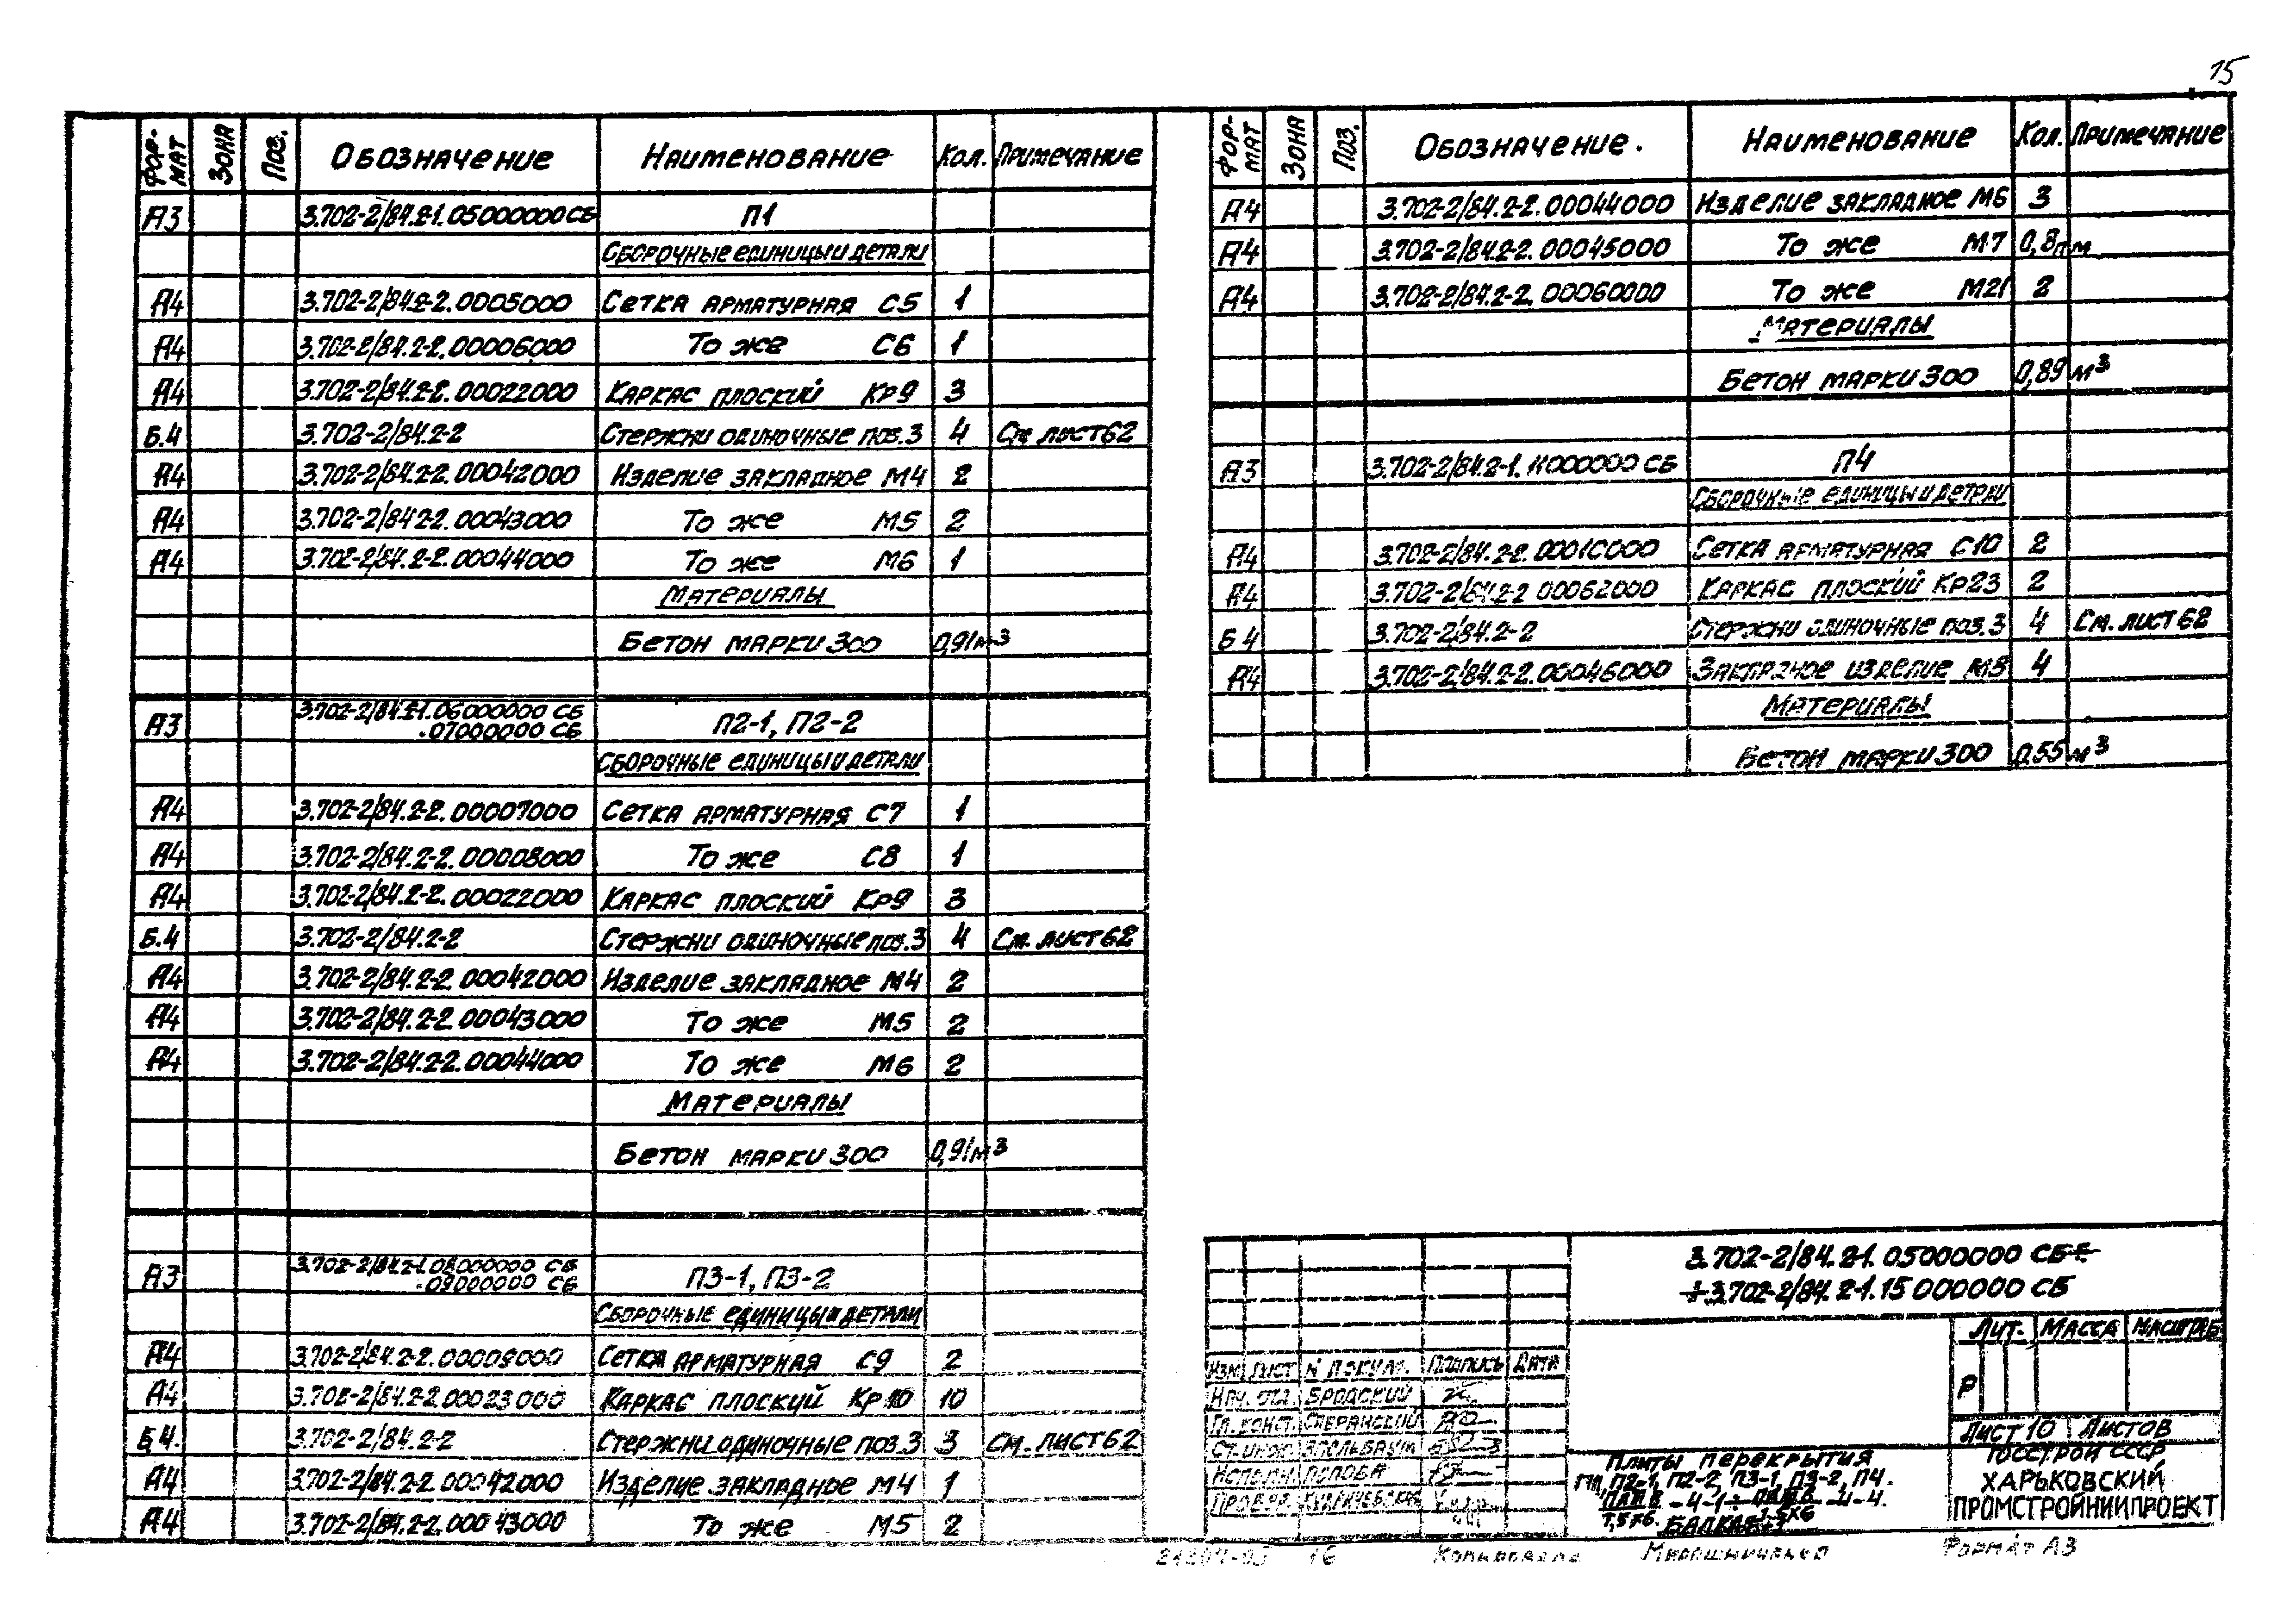 15
ФОР-МАТ ЗОНА Поз. Обозначение Наименование Кол. Примечание
А3 3.702-2/84.2-1.05000000СБ П1
Сборочные единицы и детали
А4 3.702-2/84.2-2.0005000 Сетка арматурная С5 1
А4 3.702-2/84.2-2.00006000 То же С6 1
А4 3.702-2/84.2-2.00022000 Каркас плоский Кр9 3
Б.4 3.702-2/84.2-2 Стержни одиночные поз.3 4 См лист 62
А4 3.702-2/84.2-2.00042000 Изделие закладное М4 2
А4 3.702-2/84.2-2.00043000 То же М5 2
А4 3.702-2/84.2-2.00044000 То же М6 1
Материалы
Бетон марки 300 0,91м3
А3 3.702-2/84.2-1.06000000 СБ
.07000000 СБ П2-1, П2-2
Сборочные единицы и детали
А4 3.702-2/84.2-2.00007000 Сетка арматурная С7 1
А4 3.702-2/84.2-2.00008000 То же С8 1
А4 3.702-2/84.2-2.00022000 Каркас плоский Кр9 3
Б.4 3.702-2/84.2-2 Стержни одиночные поз.3 4 См. лист 62
А4 3.702-2/84.2-2.00042000 Изделие закладное М4 2
А4 3.702-2/84.2-2.00043000 То же М5 2
А4 3.702-2/84.2-2.00044000 То же М6 2
Материалы
Бетон марки 300 0,91м3
А3 3.702-2/84.2-1.08000000 СБ
.09000000 СБ П3-1, П3-2
Сборочные единицы и детали
А4 3.702-2/84.2-2.00009000 Сетка арматурная С9 2
А4 3.702-2/84.2-2.00023000 Каркас плоский Кр10 10
Б4. 3.702-2/84.2-2 Стержни одиночные поз.3 3 См. лист 62
А4 3.702-2/84.2-2.00042000 Изделие закладное М4 1
А4 3.702-2/84.2-2.00043000 То же М5 2
ФОР-МАТ ЗОНА Поз. Обозначение. Наименование Кол. Примечание
А4 3.702-2/84.2-2.00044000 Изделие закладное М6 3
А4 3.702-2/84.2-2.00045000 То же М7 0,8п.м
А4 3.702-2/84.2-2.00060000 То же М21 2
Материалы
Бетон марки 300 0,89 м3
А3 3.702-2/84.2-1.11000000 СБ П4
Сборочные единицы и детали
А4 3.702-2/84.2-2.00010000 Сетка арматурная С10 2
А4 3.702-2/84.2-2 00062000 Каркас плоский Кр23 2
Б4 3.702-2/84.2-2 Стержни одиночные поз.3 4 См. лист 62
А4 3.702-2/84.2-2.00046000 Закладное изделие М8 4
Материалы
Бетон марки 300 0.55 м3
3.702-2/84.2-1.05000000 СБ÷
÷3.702-2/84.2-1.15000000 СБ
Лит. Масса Масштаб
Р
Изм Лист N докум. Подпись Дата
Нач. отд. Бродский
Гл. конст. Сабранский
Ст. инж.
Исполн. Попова
Провер.
Лист 10 Листов
Плиты перекрытия
П1, П2-1, П2-2, П3-1, П3-2, П4.
-4-1÷ -4-4.
Госстрой СССР
ХАРЬКОВСКИЙ
ПРОМСТРОЙНИИПРОЕКТ
16 Копировала Мирошниченко Формат А3